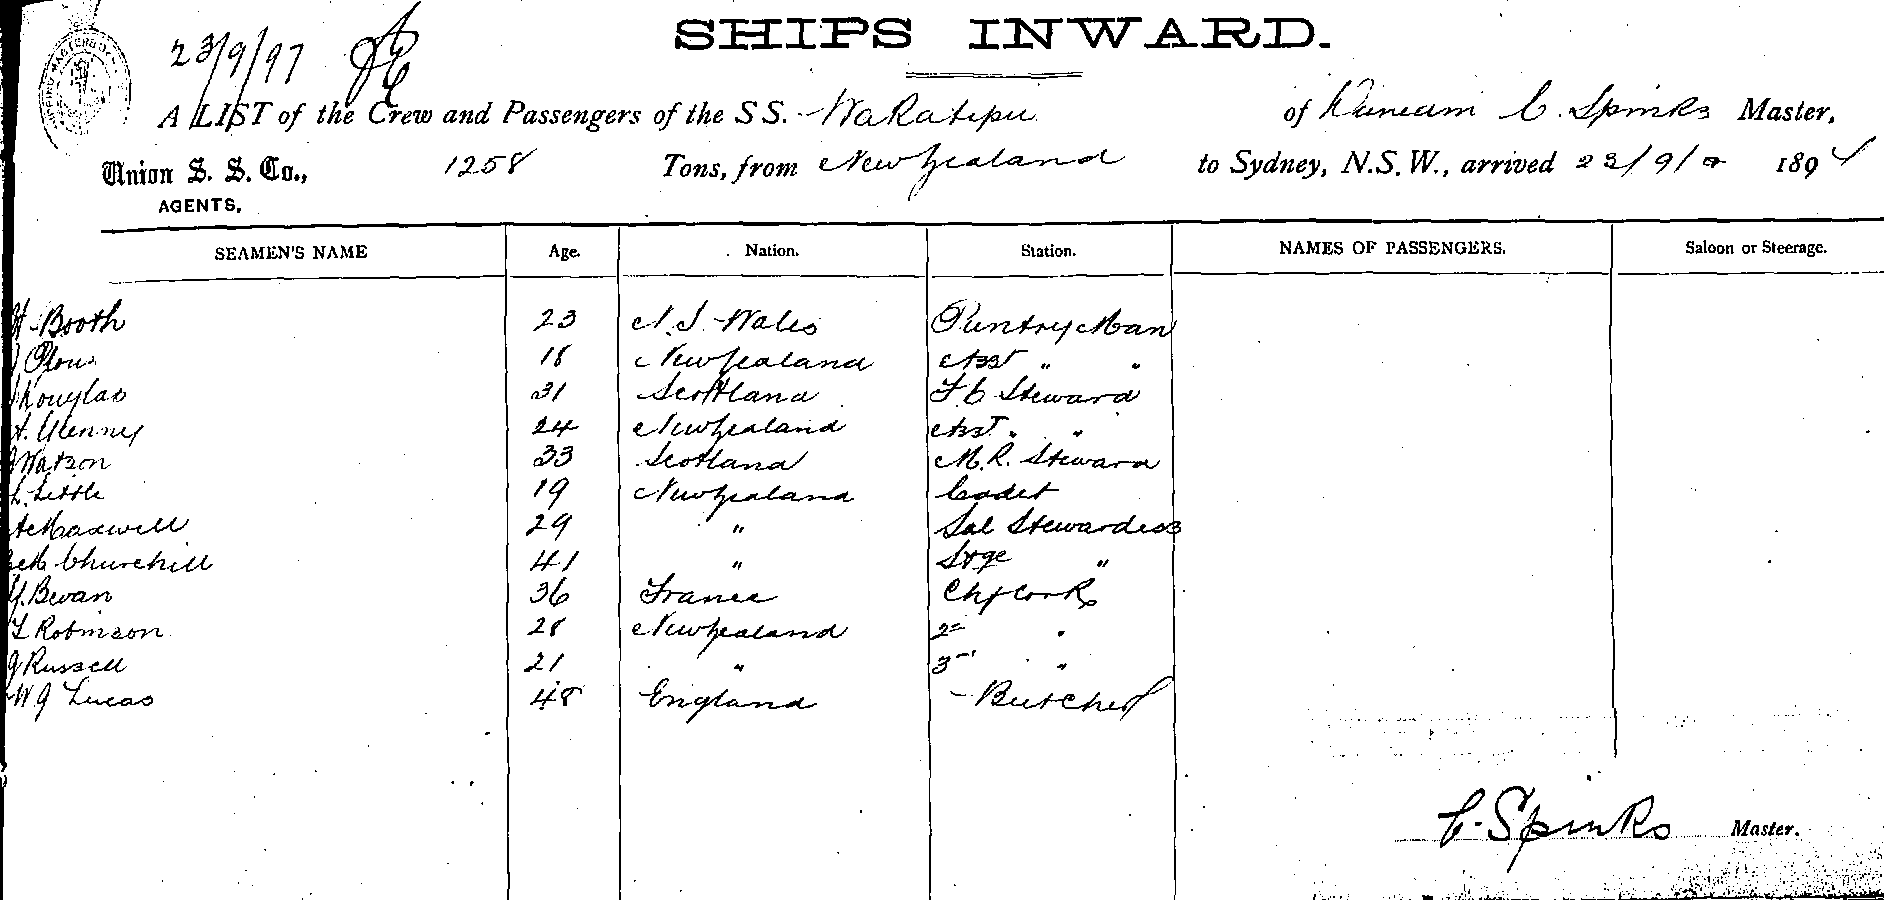 23/9/97
SHIPS INWARD.
A LIST of the Crew and Passengers of the SS. Wakatipu of Dunedin C. Spinks Master,
Union S. S. Co., 1258 Tons, from New Zealand to Sydney, N.S.W., arrived 23/9/ 189
AGENTS.
SEAMEN'S NAME Age. Nation. Station. NAMES OF PASSENGERS. Saloon or Steerage.
H Booth 23 N. S. Wales Pantry Man
18 New Zealand Asst " "
Douglas 31 Scotland F. C Steward
H. Glenney 24 New Zealand Asst " "
Watson 33 Scotland M. R. Steward
L. Little 19 New Zealand Cadet
A Maxwell 29 " Sal Stewardess
M Churchill 41 " Stge "
Y. Bevan 36 France Chf cook
T Robinson 28 New Zealand 2nd "
J Russell 21 " 3rd "
W J Lucas 48 England Butcher
C. Spinks Master.